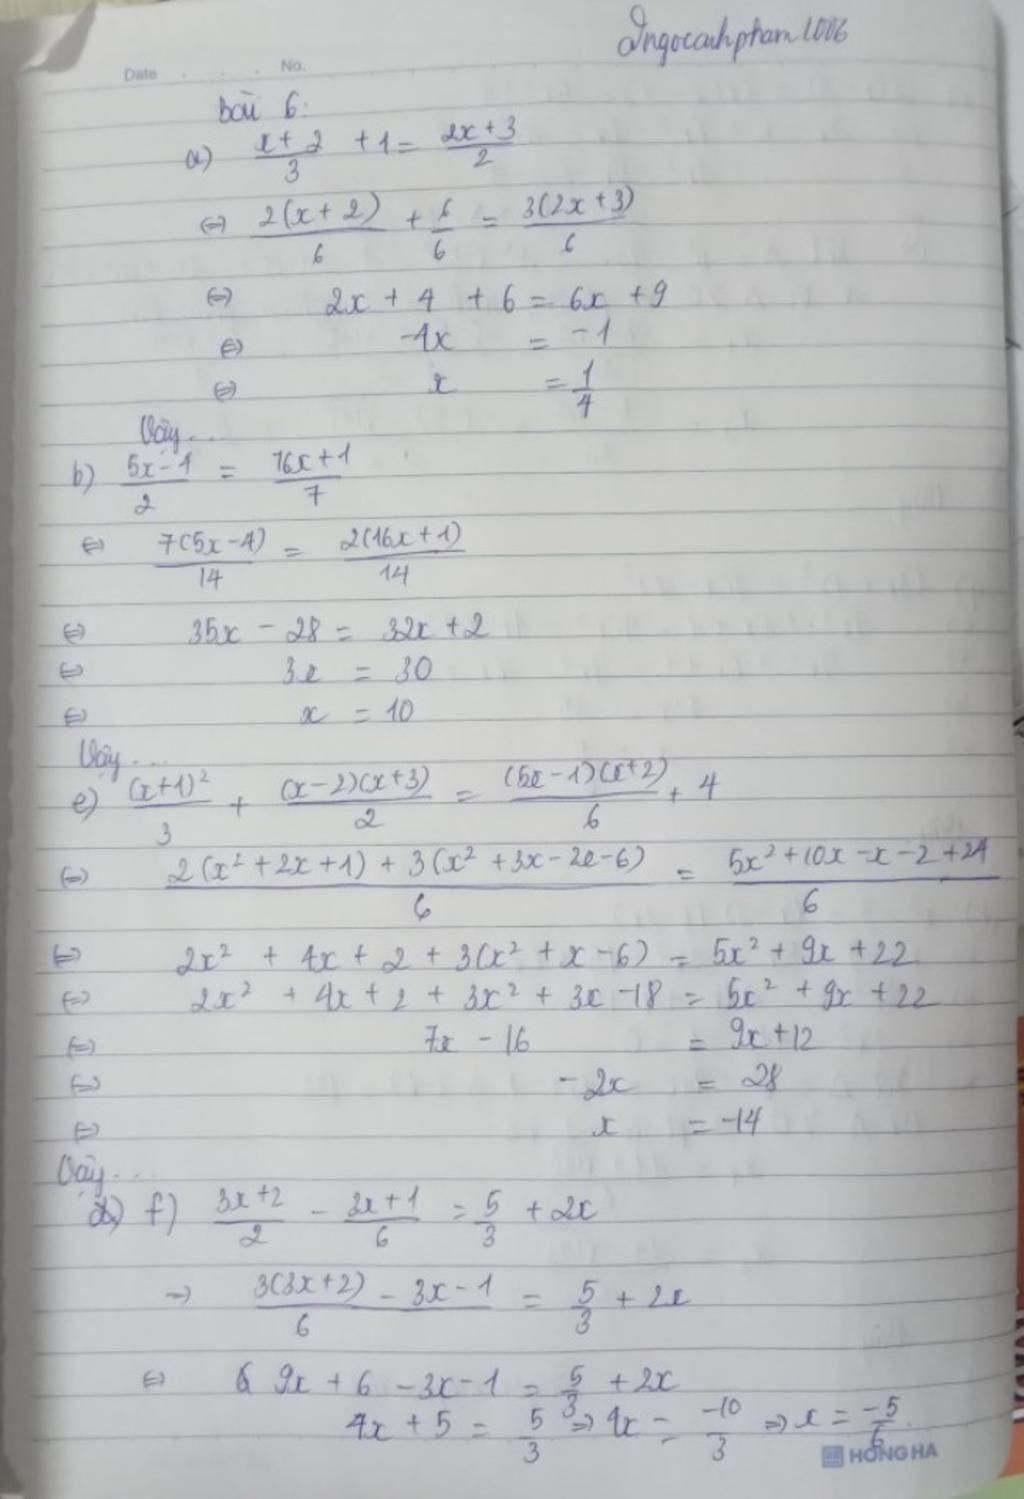 Ingocanhpham1006
Date . . . . No.
bài 6:
a) (x+2)/3 + 1 = (2x+3)/2
⇔ 2(x+2)/6 + 6/6 = 3(2x+3)/6
⇔ 2x + 4 + 6 = 6x + 9
⇔ -4x = -1
⇔ x = 1/4
Vậy...
b) (5x-1)/2 = (16x+1)/7
⇔ 7(5x-4)/14 = 2(16x+1)/14
⇔ 35x - 28 = 32x + 2
⇔ 3x = 30
⇔ x = 10
Vậy...
e) (x+1)²/3 + (x-2)(x+3)/2 = (5x-1)(x+2)/6 + 4
⇔ (2(x²+2x+1) + 3(x²+3x-2x-6))/6 = (5x²+10x-x-2+24)/6
⇔ 2x² + 4x + 2 + 3(x² + x - 6) = 5x² + 9x + 22
⇔ 2x² + 4x + 2 + 3x² + 3x - 18 = 5x² + 9x + 22
⇔ 7x - 16 = 9x + 12
⇔ -2x = 28
⇔ x = -14
Vậy...
f) (3x+2)/2 - (3x+1)/6 = 5/3 + 2x
⇒ (3(3x+2) - 3x - 1)/6 = 5/3 + 2x
⇔ 9x + 6 - 3x - 1 = 5/3 + 2x
4x + 5 = 5/3 ⇒ 4x = -10/3 ⇒ x = -5/6.
HONG HA